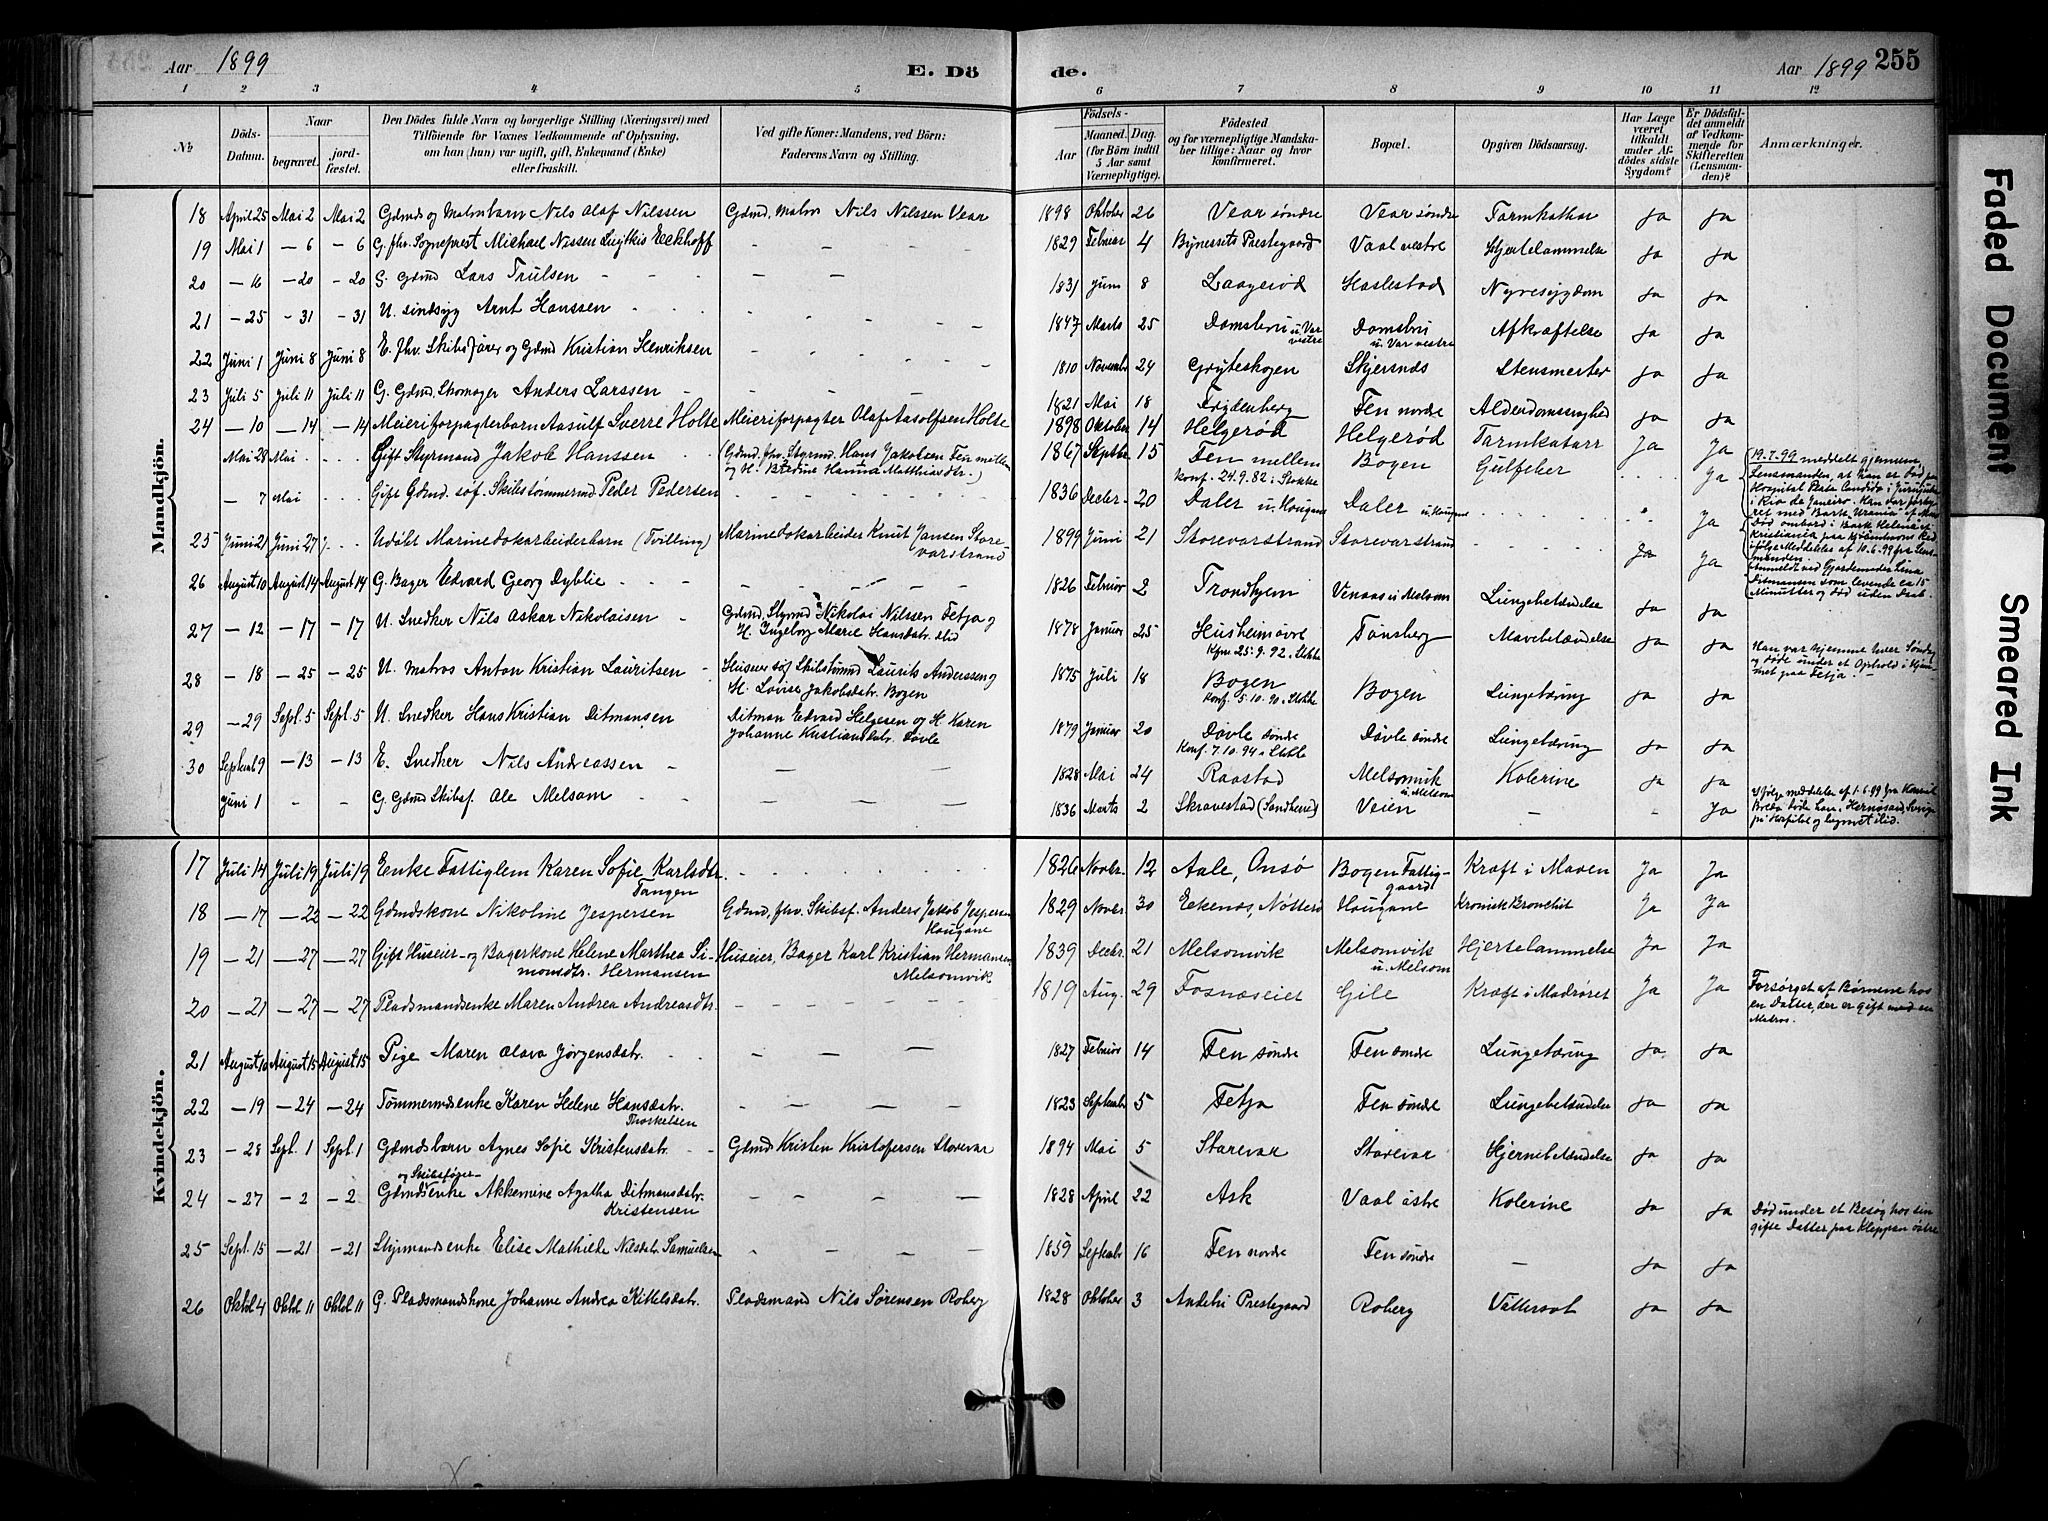 Aar 1899
E. Dö
de.
Aar 1899
255
1 2 3 4 5 6 7 8 9 10 11 12
№
Döds-Datum.
Naar
begravet.
jord-fæstet.
Den Dödes fulde Navn og borgerlige Stilling (Næringsvei) med
Tilföiende for Voxnes Vedkommende af Oplysning,
om han (hun) var ugift, gift, Enkemand (Enke)
eller fraskilt.
Ved gifte Koner: Mandens, ved Börn:
Faderens Navn og Stilling.
Födsels-
Aar
Maaned. Dag.
(for Börn indtil
5 Aar samt
Værnepligtige).
Födested
og for værnepligtige Mandska-
ber tillige: Naar og hvor
konfirmeret.
Bopæl.
Opgiven Dödsaarsag.
Har Læge
været
tilkaldt
under Af-
dödes sidste
Sygdom?
Er Dödsfal-
det anmeldt
af Vedkom-
mende for
Skifteretten
(Lensman-
den)?
Anmærkninger.
Mandkjön.
18 April 25 Mai 2 Mai 2 Gdmds og Matrosbarn Nils Olaf Nilssen Gdmd, Matros Nils Nilssen Vear 1898 Oktober 26 Vear søndre Vear søndre Tarmkathar Ja Ja
19 Mai 1 — 6 — 6 G. fhv. Sogneprest Michael Nissen Eeckhoff — — — 1829 Februar 4 Bynessets Prestegaard Vaal vestre Hjertelammelse Ja Ja
20 — 16 — 20 — 20 G. Gdmd Lars Trulsen — — 1831 Juni 8 Laagerød Haslestad Nyresygdom Ja Ja
21 — 25 — 31 — 31 U. sindsyg Arnt Hanssen 1847 Marts 25 u. Var vestre u. Var vestre Afkræftelse Ja Ja
22 Juni 1 Juni 8 Juni 8 E. fhv. Skibsfører og Gdmd Kristian Henriksen 1810 Novembr 24 Gryteskogen Skjersnæs Stensmerter Ja Ja
23 Juli 5 Juli 11 Juli 11 G. Gdmd Skomager Anders Larssen 1821 Mai 18 Frydenberg Fen nordre Alderdomssvaghed Ja Ja
24 — 10 — 14 — 14 Meieriforpagterbarn Aasulf Sverre Holte Meieriforpagter Olaf Aasolfsen Holte 1898 Oktober 14 Helgerød Helgerød Tarmkatarr Ja Ja
Mai 28 Mai Gift Styrmand Jakob Hanssen (Gdmd. fhv. Styrmd. Hans Jakobsen Fen mellem
og H. Berdine Hanna Matthiasdtr.) 1867 Septbr. 15 Fen mellem
Konf. 24.9.82 i Stokke Bogen Gulfeber Ja
— 7 Mai Gift Gdmd. Søf. Skibstømmermd Peder Pedersen 1836 Decbr. 20 Daler u. Hougane Daler u. Hougane Ja
19.7.99 meddelt gjennem
Lensmanden, at han er død paa
Hospital
i Rio de Janeiro. Han var
ret med Bark Urania
Død ombord i Bark Helena af
Kristiania paa Kjøbenhavns Red
ifølge Meddelelse af 10.6.99 fra Lens-
manden.
25 Juni 21 Juni 27 Udøbt Marinedokarbeiderbarn (Tvilling) Marinedokarbeider Knut Jansen Store-
varstrand 1899 Juni 21 Storevarstrand Storevarstrand Ja Ja
Anmeldt ved Gjordemoder Lina
Ditmansen som levende ca 15
Minutter og død uden Daab.
26 August 10 August 14 August 14 G. Bager Edvard Georg Dyblie — — 1826 Februar 2 Trondhjem Venaas u. Melsom Lungebetændelse Ja Ja
27 — 12 — 17 — 17 U. Snedker Nils Oskar Nikolaisen Gdmd. Styrmd Nikolai Nilssen Fetja og
H. Ingeborg Marie Hansdatr. ibid 1878 Januar 25 Husheim øvre
Kfm 25.9.92 i Stokke Tønsberg Mavebetændelse Ja Ja
Han var hjemme hver Søndag
og døde under et Ophold i Hjem-
met paa Fetja.
28 — 18 — 25 — 25 U. Matros Anton Kristian Lauritsen Huseier søf Skibstømmd Laurits Anderssen og
H. Lovise Jakobsdtr. Bogen 1875 Juli 18 Bogen
Konf. 5.10.90 i Stokke Bogen Lungetæring Ja Ja
29 — 29 Sept. 5 Sept. 5 U. Snedker Hans Kristian Ditmansen Ditman Edvard Helgesen og H. Karen
Johanne Kristiansdtr. Døvle 1879 Januar 20 Døvle søndre
Konf. 7.10.94 i Stokke Døvle søndre Lungetæring Ja Ja
30 Septembr 9 — 13 — 13 E. Snedker Nils Andreassen — — 1828 Mai 24 Raastad Melsomvik
u. Melsom Kolerine Ja Ja
Juni 1 - - G. Gdmd Skibsf. Ole Melsom — — 1836 Marts 2 Skravestad (Sandeherred) Veien — - Ja
Ifølge meddelelse af 1-6-99 fra
døde han i Hernøsand, Sverige
på Hospital og begravet ibid.
Kvindekjön.
17 Juli 14 Juli 19 Juli 19 Enke Fattiglem Karen Sofie Karlsdtr.
Tangen 1826 Novbr. 12 Aale, Onsø Bogen Fattig-
gaard Kræft i Maven Ja Ja
18 — 17 — 22 — 22 Gdmdskone Nikoline Jespersen Gdmd, fhv. Skibsf. Anders Jakob Jespersen
Hougane 1829 Novbr. 30 Ekenes, Nøtterø Hougane Kronisk Bronchit Ja Ja
19 — 21 — 27 — 27 Gift Huseier- og Bagerkone Helene Marthea Si-
monsdtr. Hermansen Huseier, Bager Karl Kristian Hermansen,
Melsomvik 1839 Decbr. 21 Melsomvik Melsomvik
u. Melsom Hjertelammelse Ja Ja
20 — 21 — 27 — 27 Pladsmandsenke Maren Andrea Andreasdtr. 1819 Aug. 29 Fosnæseiet Gile Kræft i Madrøret Ja Ja
Forsørget af Børnene hos
en Datter, der er gift med en
Matros.
21 August 10 August 15 August 15 Pige Maren Olava Jørgensdatr. — — — 1827 Februar 14 Fen søndre Fen søndre Lungetæring Ja Ja
22 — 19 — 24 — 24 Tømmermdsenke Karen Helene Hansdatr.
Thorkelsen — — — 1823 September 5 Fetja Fen søndre Lungebetændelse Ja Ja
23 — 28 Sept. 1 Sept. 1 Gdmdsbarn Agnes Sofie Kristensdatr. Gdmd Kristen Kristofersen Storevar 1894 Mai 5 Storevar Storevar Hjernebetændelse Ja Ja
24 — 27 — 2 — 2 og Skibsfører-
Gdmdsenke Akkemine Agatha Ditmansdatr.
Kristensen — — — 1828 April 22 Ask Vaal østre Kolerine Ja Ja
Død under et Besøg hos sin
gifte Datter paa Kleppan østre
25 Sept. 15 — 21 — 21 Styrmandsenke Elise Mathilde Nilsdatr. Samuelsen — — — 1859 Septembr 16 Fen nordre Fen søndre — Ja Ja
26 Oktob 4 Oktob 11 Oktob 11 G. Pladsmandskone Johanne Andrea Kittelsdatr. Pladsmand Nils Sørensen Roberg 1828 Oktober 3 Andebu Prestegaard Roberg Vattersot Ja Ja
Faded Document
Smeared Ink